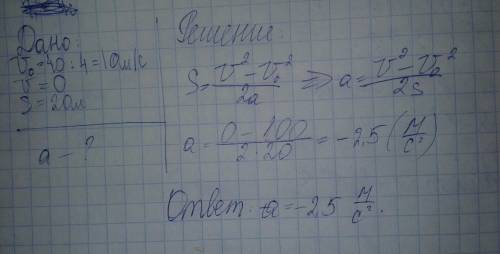 Дано:
V₀=40:4=10м/с
V=0
S=20м
a - ?
Решение:
S=(V²-V₀²)/2a => a=(V²-V₀²)/2s
a=(0-100)/(2·20)=-2,5(м/с²)
Ответ: a=-2,5 м/с².